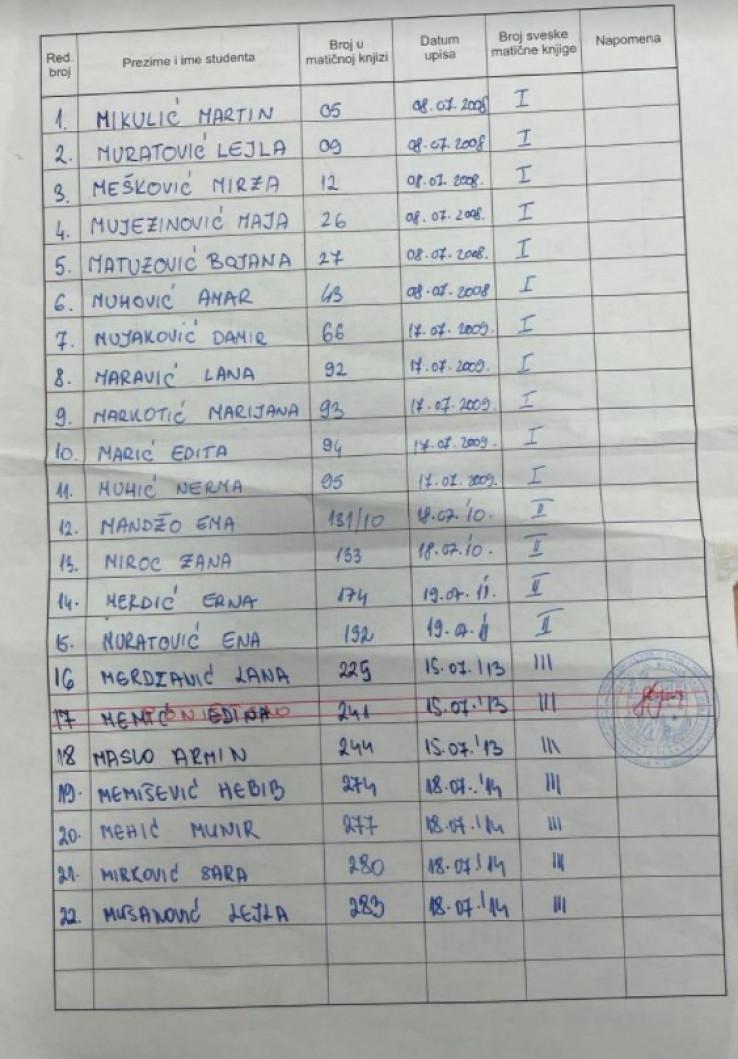 Red. broj Prezime i ime studenta Broj u matičnoj knjizi Datum upisa Broj sveske matične knjige Napomena
1. MIKULIĆ MARTIN 05 08.07.2008 I
2. MURATOVIĆ LEJLA 09 08.07.2008 I
3. MEŠKOVIĆ MIRZA 12 08.07.2008. I
4. MUJEZINOVIĆ MAJA 26 08.07.2008. I
5. MATUZOVIĆ BOJANA 27 08.07.2008. I
6. MUHOVIĆ AMAR 43 08.07.2008 I
7. MUJAKOVIĆ DAMIR 66 17.07.2009. I
8. MARAVIĆ LANA 92 17.07.2009. I
9. MARKOTIĆ MARIJANA 93 17.07.2009. I
10. MARIĆ EDITA 94 17.07.2009. I
11. MUHIĆ NERMA 95 17.07.2009. I
12. MANDŽO EMA 131/10 18.07.'10. II
13. MIROĆ ŽANA 133 18.07.'10. II
14. MERDIĆ ERNA 174 19.07.'11. II
15. MURATOVIĆ ENA 192 19.07.'11 II
16 MERDŽANIĆ LANA 229 15.07.'13 III
17 MEMIĆ 241 15.07.'13 III
18 MASLO ARMIN 244 15.07.'13 III
19. MEMIŠEVIĆ HEBIB 274 18.07.'14 III
20. MEHIĆ MUNIR 277 18.07.'14 III
21. MIRKOVIĆ SARA 280 18.07.'14 III
22. MUŠANOVIĆ LEJLA 283 18.07.'14 III